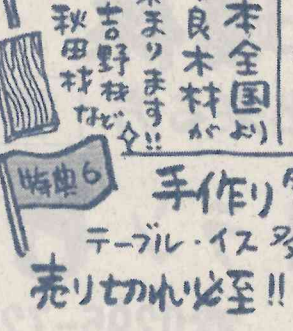 本全国より
良木材が
集まります!!
吉野材
秋田材
など
特典6
手作り
テーブル・イス
売り切れ必至!!